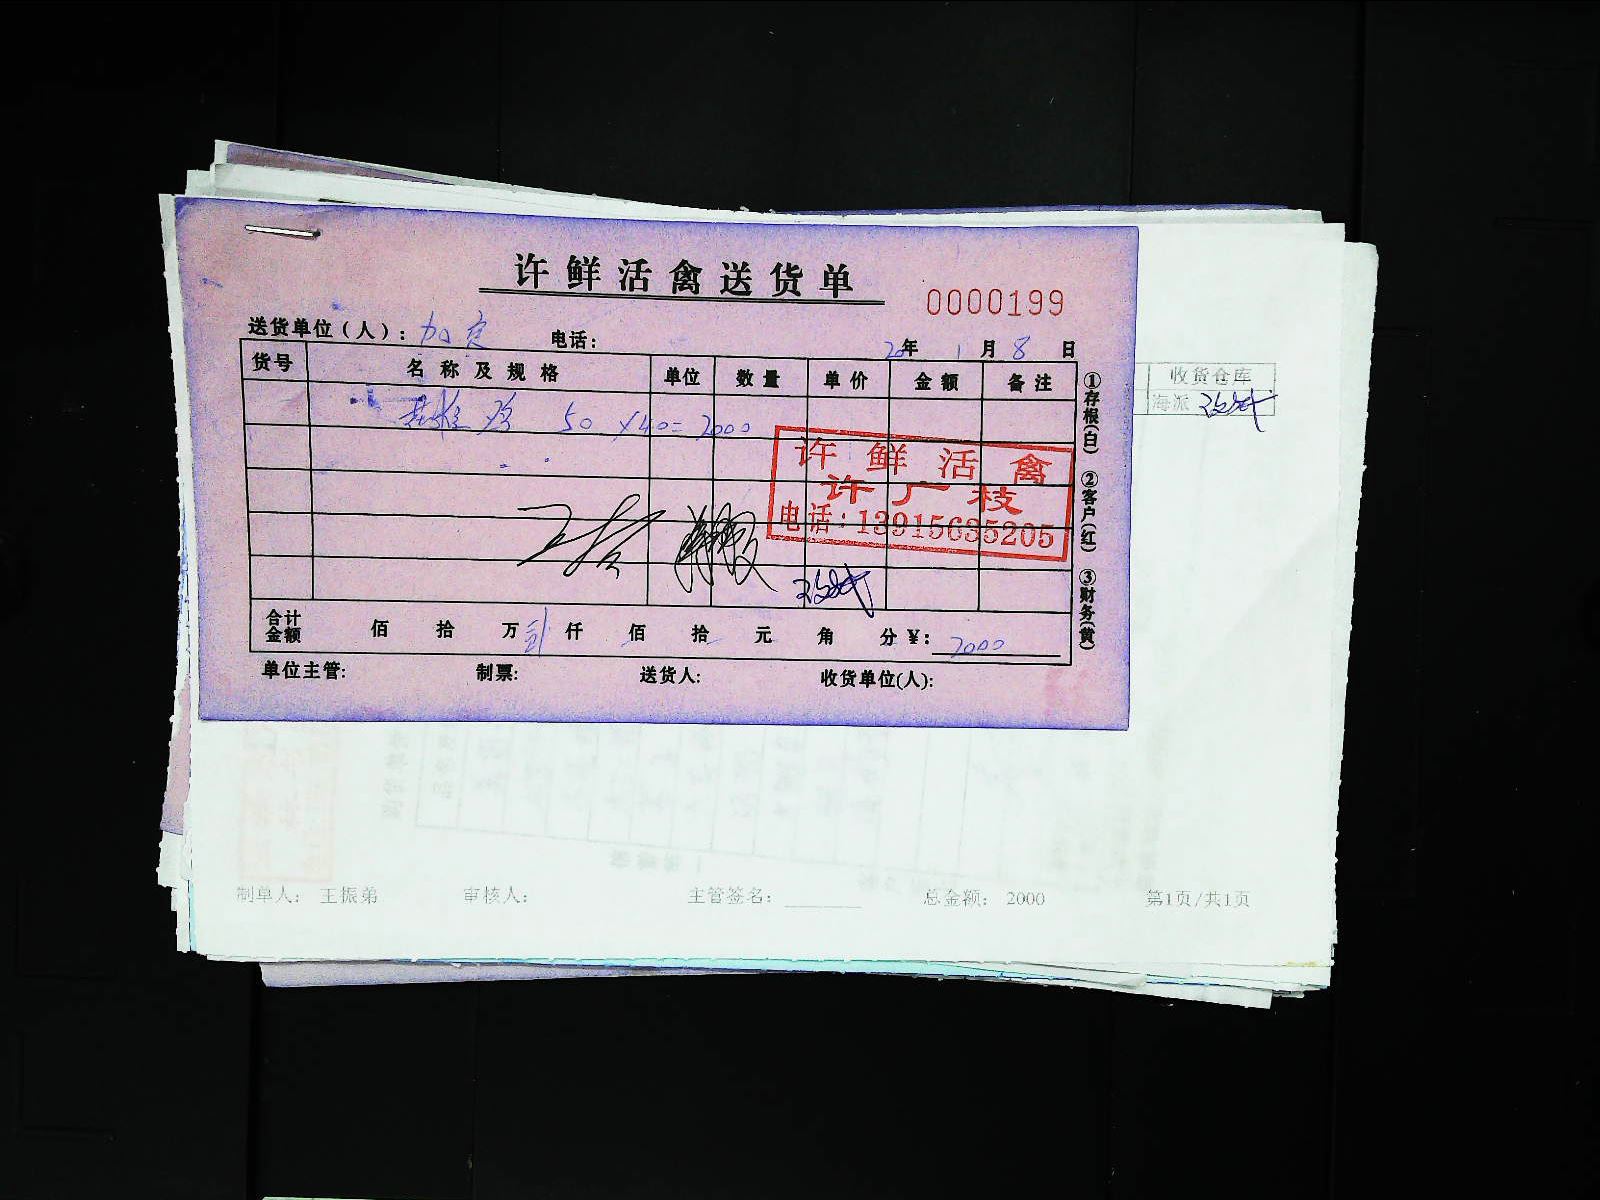 许鲜活禽送货单
0000199
送货单位(人): 加 电话: 20年 1月 8日
货号 名称及规格 单位 数量 单价 金额 备注
鸡 50 × 40 = 2000
许鲜活禽
许广枝
电话:13915635205
合计金额 佰 拾 万 贰仟 佰 拾 元 角 分 ¥: 2000
单位主管: 制票: 送货人: 收货单位(人):
①存根(白) ②客户(红) ③财务(黄)
收货仓库
海派
制单人: 王振弟 审核人: 主管签名: 总金额: 2000 第1页/共1页